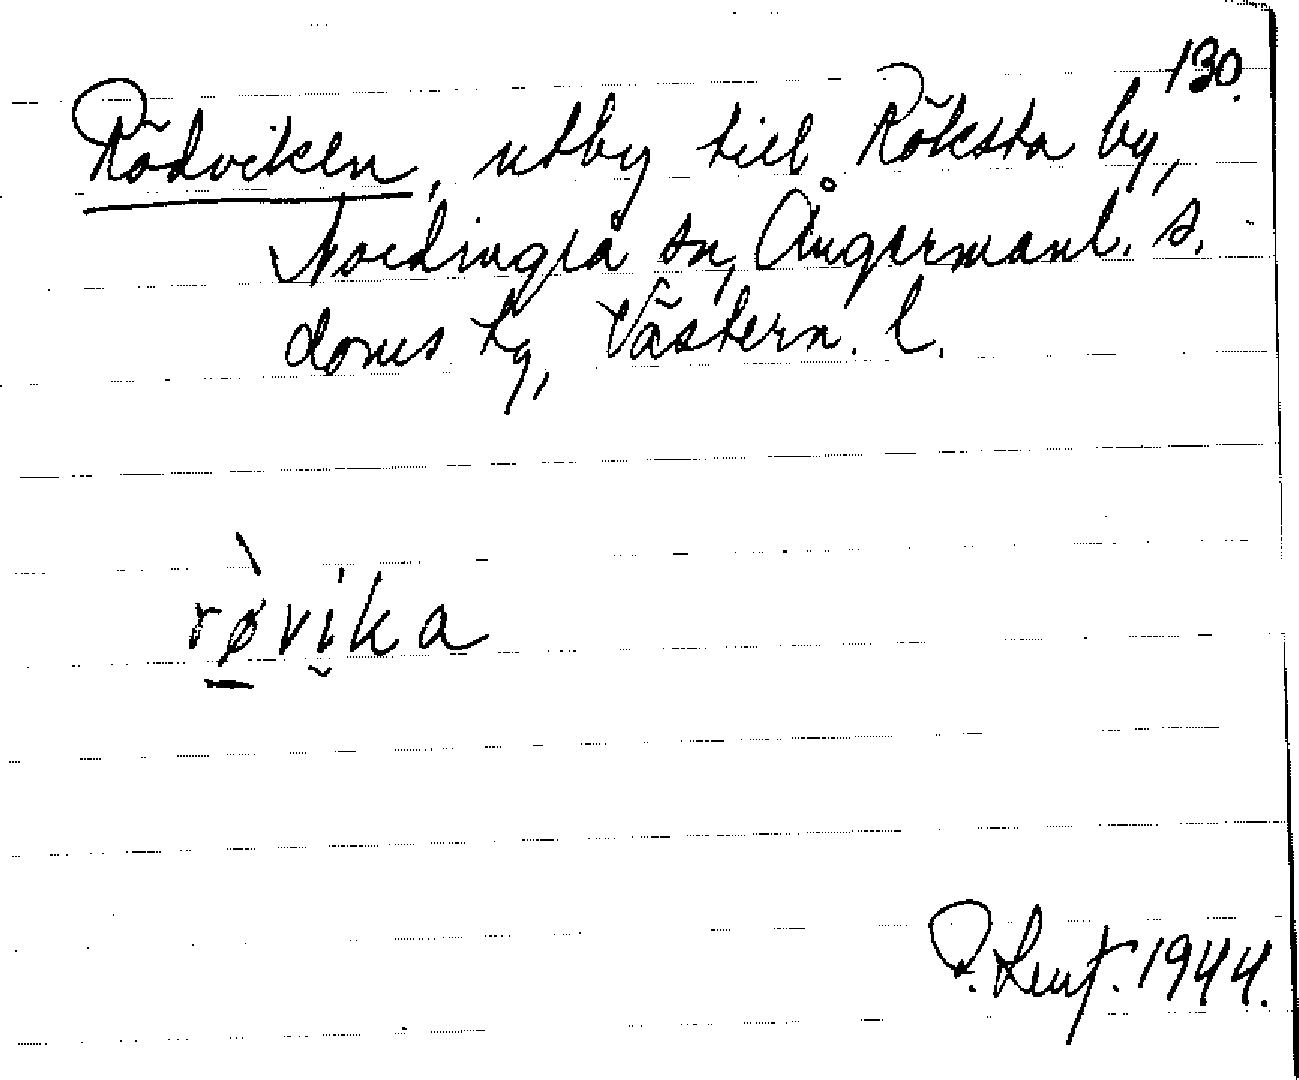 130.
Rödviken, utby till Röksta by,
Nordingrå sn, Ångermanl. s.
doms tg, Västern. l.
rø̀vika
1944.